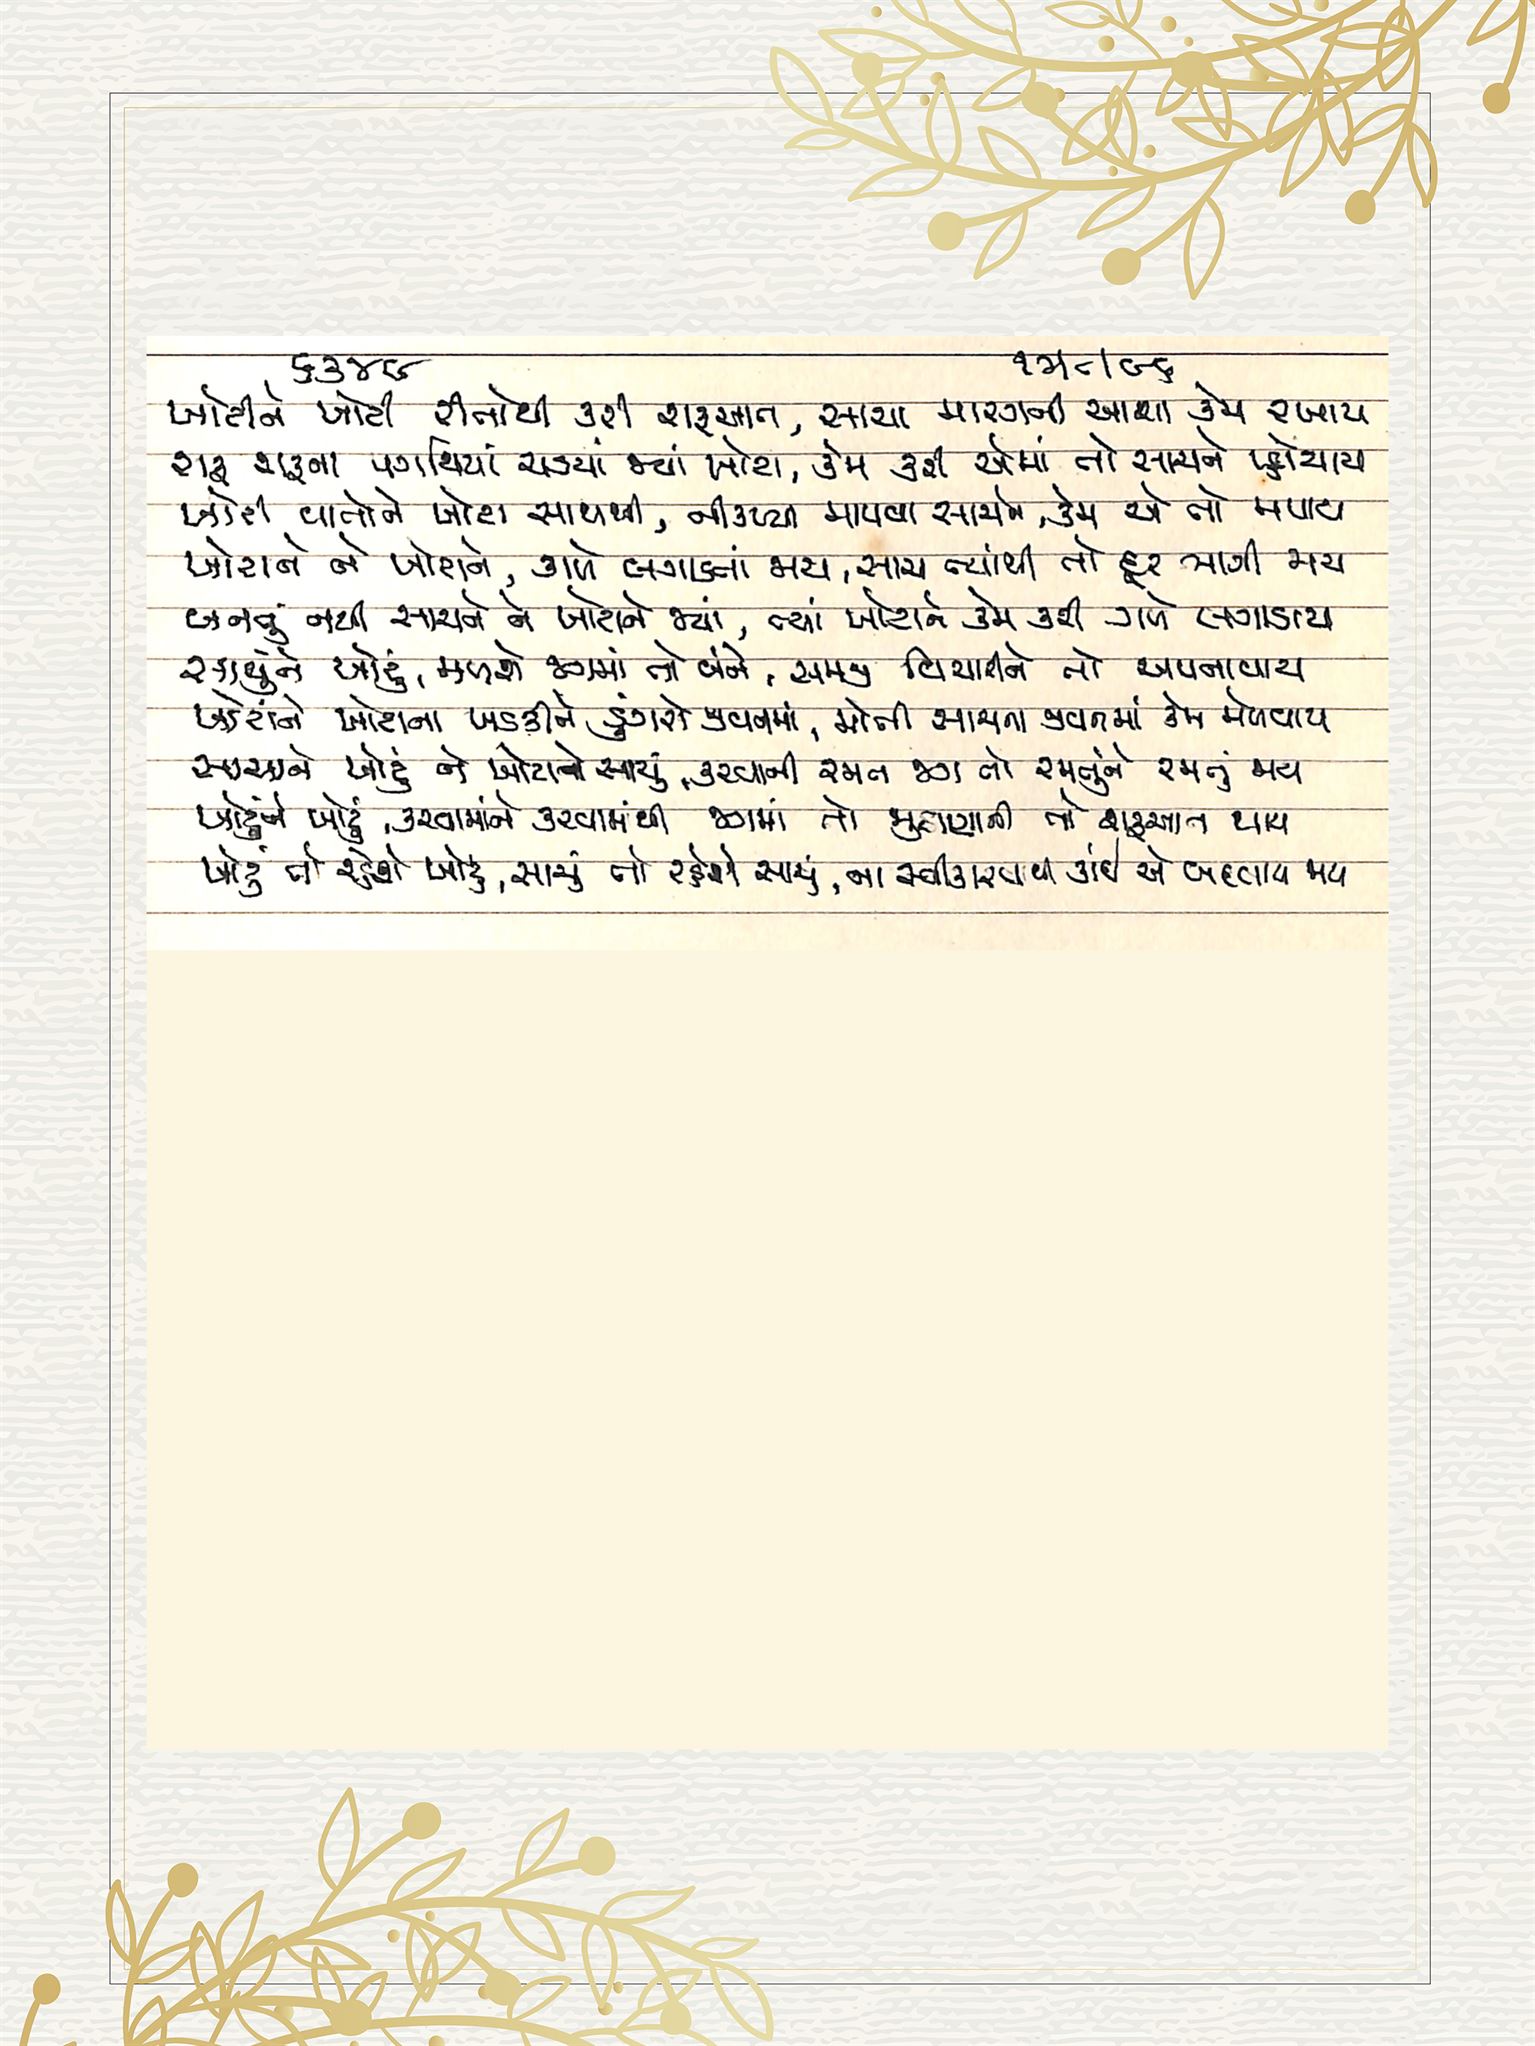 ૬૩૪૯ ૧ માર્ચ ૯૬
ખોટીને ખોટી રીતોથી કરી શરૂઆત, સાચા મારગની આશા કેમ રખાય
શરૂ શરૂના પગથિયાં ચડયાં જ્યાં ખોટા, કેમ કરી એમાં તો સાચને પ્હોંચાય
ખોટી વાતોને ખોટા સાથથી, નીકળ્યા માપવા સાચને, કેમ એ તો મપાય
ખોટાને ને ખોટાને, ગળે લગાડતાં જાય, સાચ ત્યાંથી તો દૂર ભાગી જાય
બનતું નથી સાચને ને ખોટાને જ્યાં, ત્યાં ખોટાને કેમ કરી ગળે લગાડાય
સાચુંને ખોટું, મળશે જગમાં તો બંને, સમજી વિચારીને તો અપનાવાય
ખોટાંને ખોટાના ખડકીને ડુંગરો જીવનમાં, મોતી સાચના જીવનમાં કેમ મેળવાય
સાચાને ખોટું ને ખોટાને સાચું, કરવાની રમત જગ તો રમતુંને રમતું જાય
ખોટુંને ખોટું, કરવામાંને કરવામાંથી જગમાં તો જુઠાણાની તો શરૂઆત થાય
ખોટું તો રહેશે ખોટું, સાચું તો રહેશે સાચું, ના સ્વીકારવાથી કાંઈ એ બદલાય જાય